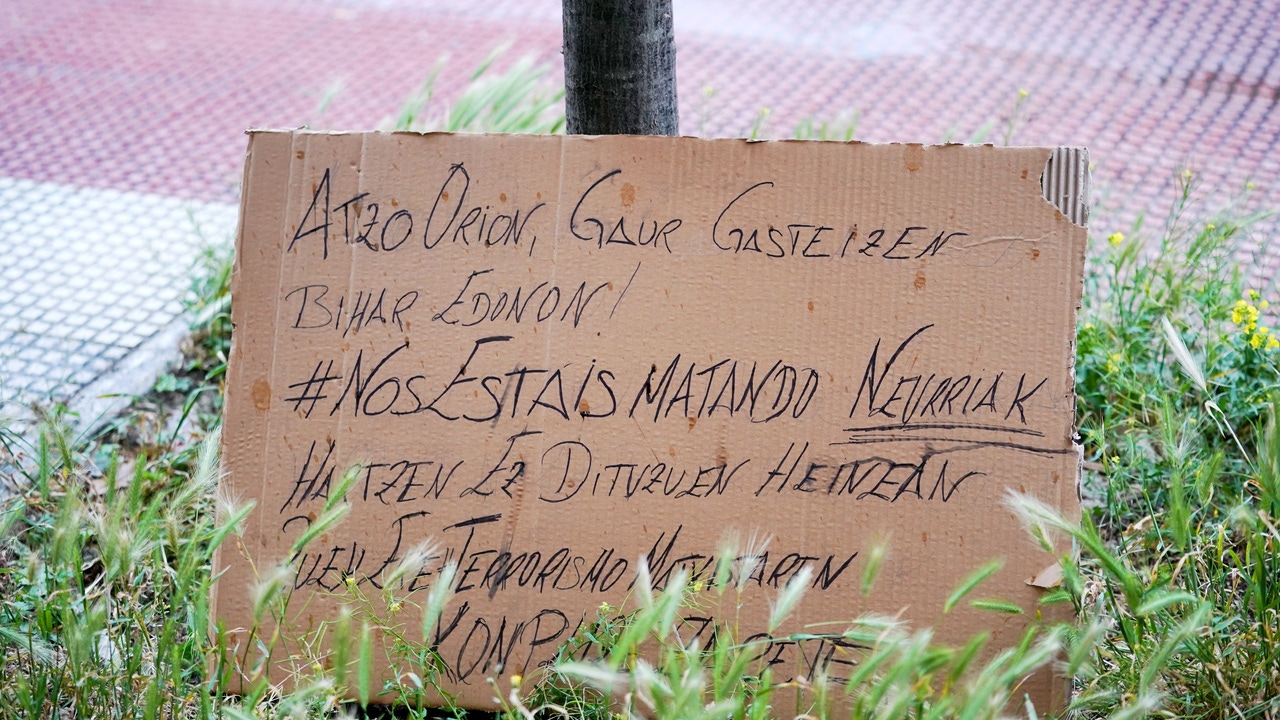 ATZO ORION, GAUR GASTEIZEN
BIHAR EDONON!
#NOSESTAISMATANDO NEURRIAK
HARTZEN EZ DITUZUEN HEINEAN
ZUEK ERE TERRORISMO MATXISTAREN